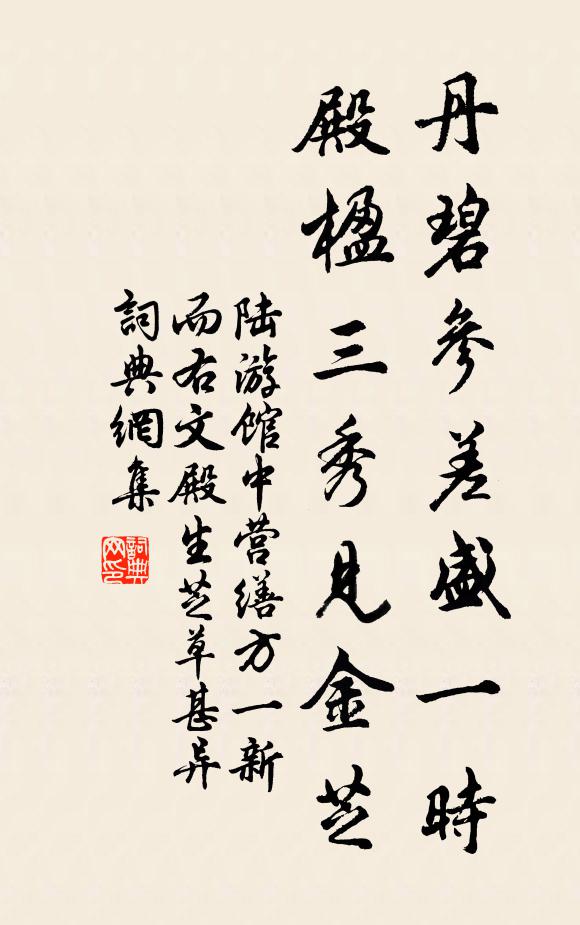 丹碧參差盛一時
殿楹三秀見金芝
陆游馆中营缮方一新
而右文殿生芝草甚异
詞典網集
詞典网印